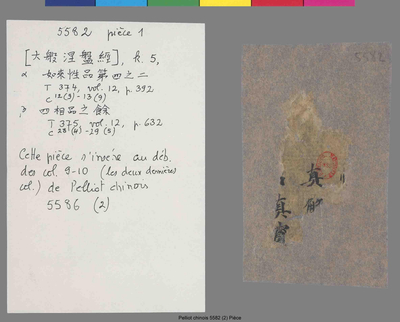 5582 pièce 1
[大般涅盤經], k. 5,
α 如來性品第四之二
T 374, vol. 12, p. 392
c 12(3) - 13(9)
β 四相品之餘
T 375, vol. 12, p. 632
c 28(4) - 29(5)
Cette pièce s'insère au déb.
des col. 9-10 (les deux dernières
col.) de Pelliot chinois
5586 (2)
真
真
Pelliot chinois 5582 (2) Pièce